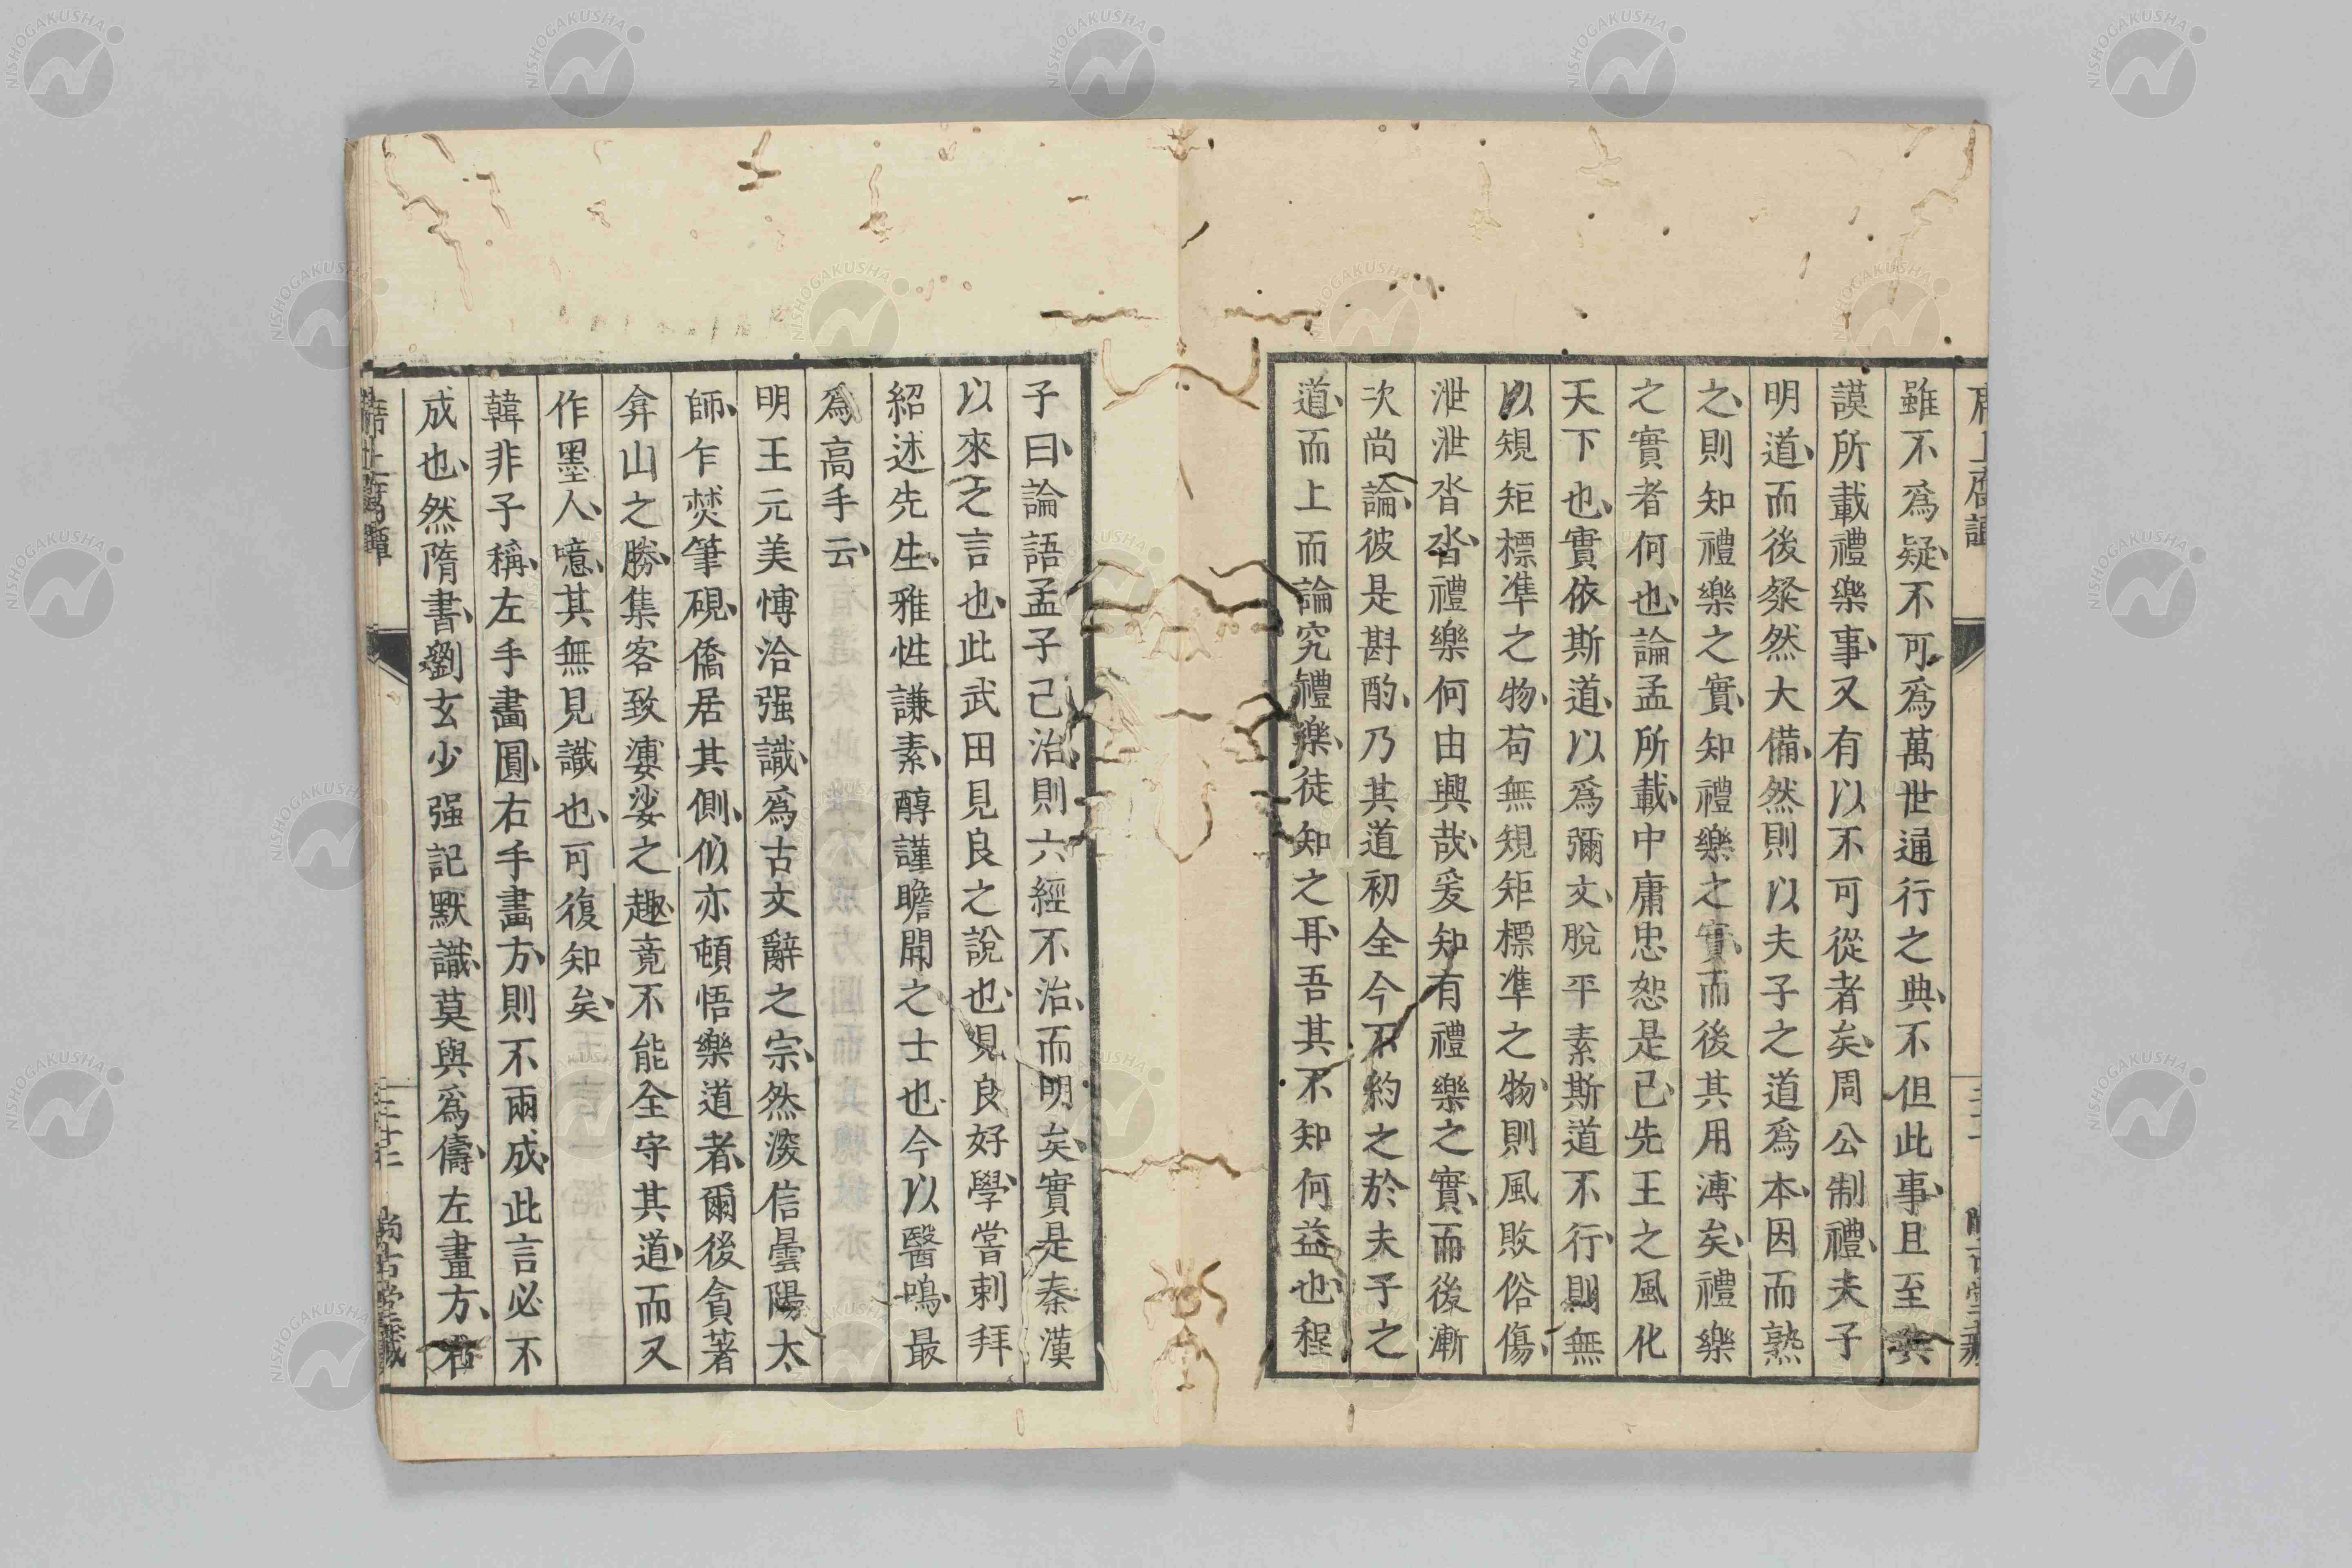 雖不爲疑、不可爲萬世通行之典、不但此事、且至典
謨所載禮樂事、又有以不可從者矣、周公制禮、夫子
明道、而後粲然大備、然則以夫子之道爲本、因而熟
之、則知禮樂之實、知禮樂之實、而後其用溥矣、禮樂
之實者何也、論孟所載、中庸忠恕是已、先王之風化
天下也、實依斯道、以爲彌文、脫平素斯道不行、則無
以規矩標準之物、苟無規矩標準之物、則風敗俗傷、
泄泄沓沓、禮樂何由興哉、爰知有禮樂之實、而後漸
次尚論、彼是斟酌、乃其道初全、今不約之於夫子之
道、而上而論究禮樂、徒知之耳、吾其不知何益也、程
子曰、論語孟子已治、則六經不治、而明矣、實是秦漢
以來之言也、此武田見良之說也、見良好學、嘗刺拜
紹述先生、雅性謙素、醇謹瞻聞之士也、今以醫鳴、最
爲高手云、
明王元美博洽强識、爲古文辭之宗、然深信曇陽太
師、乍焚筆硯、僑居其側、似亦頓悟樂道者、爾後貪著
弇山之勝、集客致婁娑之趣、竟不能全守其道、而又
作墨人、噫、其無見識也、可復知矣、
韓非子稱、左手畫圓、右手畫方、則不兩成、此言必不
成也、然隋書、劉玄少强記默識、莫與爲儔、左畫方、右